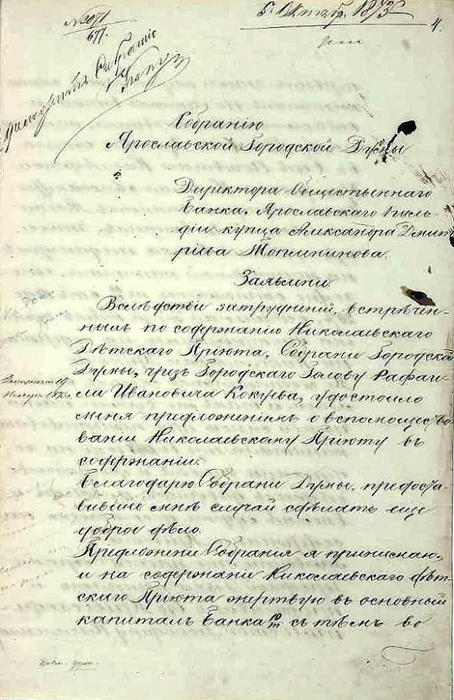 5. Октяб. 1873
4.
Собранію
Ярославской Городской Думы
Директора Общественнаго
Банка, Ярославскаго Гиль-
діи купца Александра Дмит-
ріева Топленинова.
Заявленіе
Вслѣдствіи затрудненій, встрѣчен-
ныхъ по содержанію Николаевскаго
Дѣтскаго Пріюта, Собраніе Городской
Думы, чрезъ Городскаго Голову Рафаи-
ла Ивановича Кокуева, удостоило
меня предложеніемъ о вспомощество-
ваніи Николаевскому Пріюту въ
содержаніи.
Благодарю Собраніе Думы, предоста-
вившее мнѣ случай сдѣлать еще
доброе дѣло.
Предложеніе Собранія я принимаю,
и на содержаніе Николаевскаго Дѣт-
скаго Пріюта жертвую въ основный
капиталъ Банка 10/т съ тѣмъ во